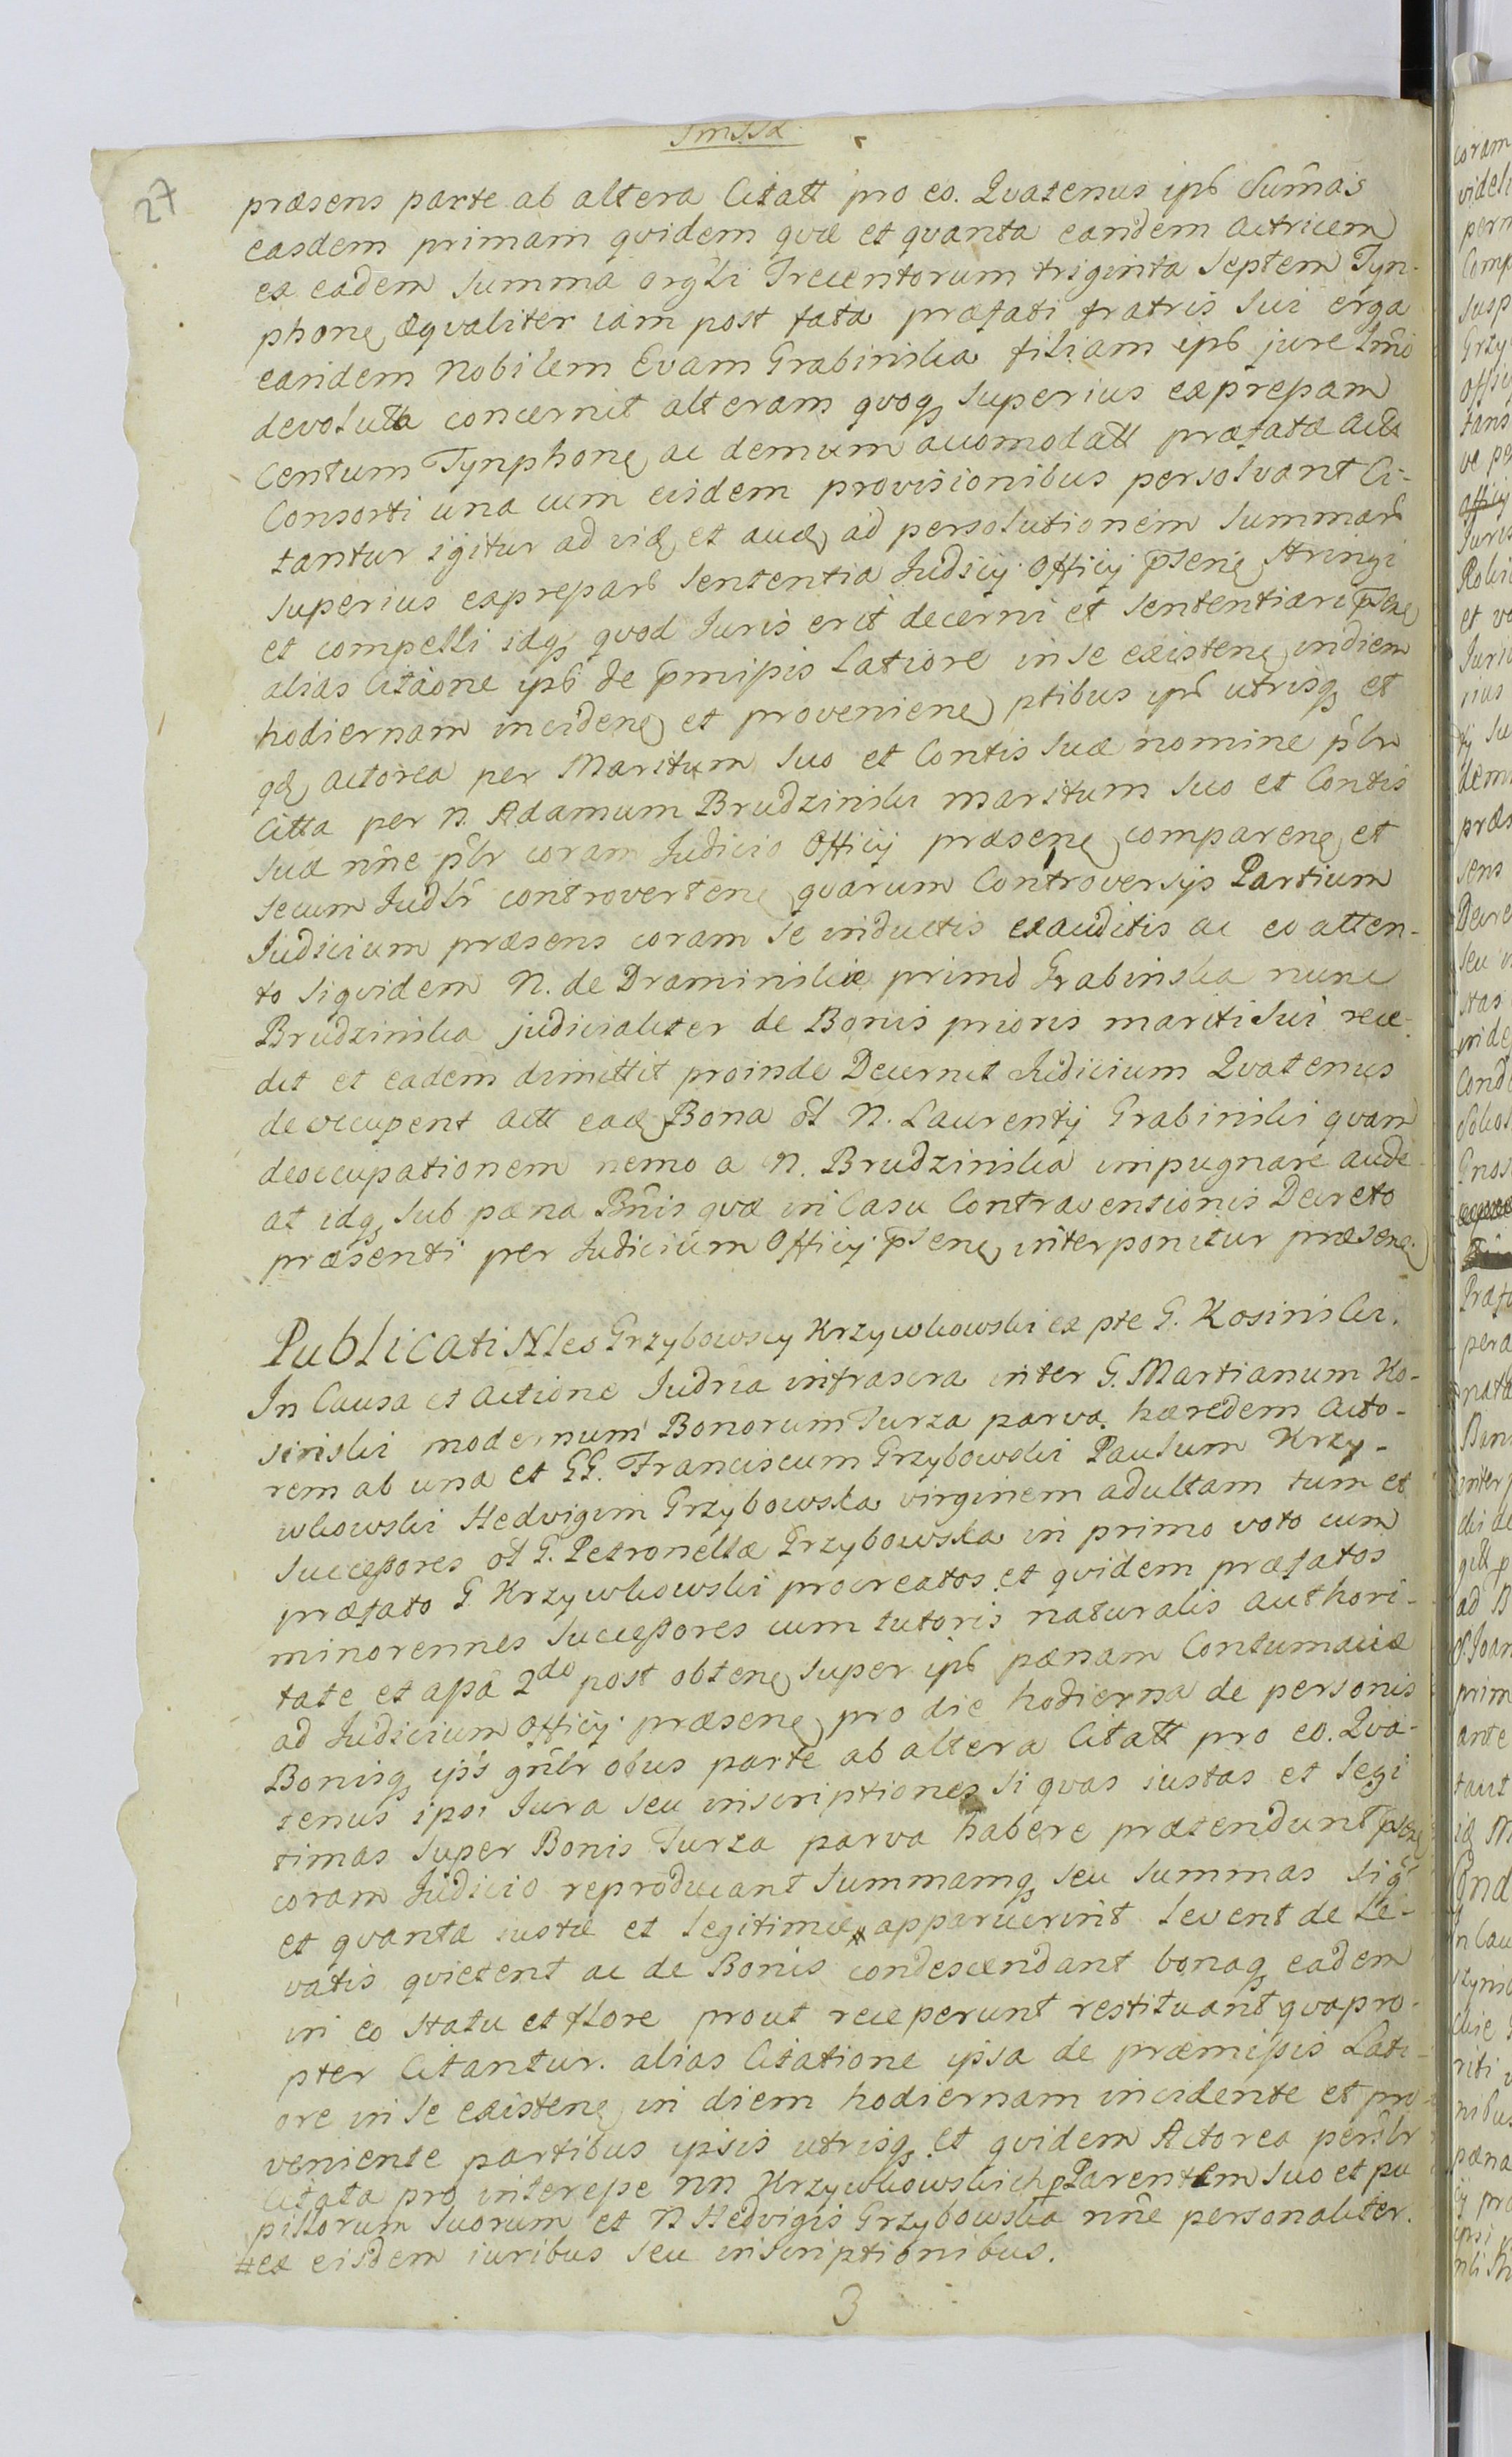 27
præsens parte ab altera Citatt pro eo. Qvatenus ips Sum̃as
easdem primam qvidem qvæ et qvanta eandem actricem
ex eadem summa orgłi Trecentorum triginta Septem Tyn-
phonę æqvaliter iam post fata præfati fratris sui erga
eandem Nobilem Evam Grabinska filiam ips jure
devoluta concernit alteram qvoqꝫ superius expressam
Centum Tynphonę ac demum accomodatt præfatæ
Consorti una cum eisdem provisionibus persolvant Ci-
tantur igitur ad vidę et audę ad persolutionem summarũ
superius expressarũ Sententia Judicij Officij p̃senę stringi
et compelli idqꝫ qvod Juris erit decerni et sententiari
alias Citãone ips de p̃missis Latiore in se existenę in diem
hodiernam incidenę et provenienę ptibus ips utrisqꝫ et
qdꝫ actorea per Maritum suo et Contis suæ nomine p̃lr
Citta per N. Adamum Brudzinski maritum suo et Contis
suæ nñe p̃lr coram Judicio Officij præsenę comparenę et
secum Judłr controvertenę qvarum Controversijs Partium
Judicium præsens coram se inductis exauditis ac eo atten-
to siqvidem N. de Draminskie primo Grabinska nunc
Brudzinska judicialiter de Bonis prioris mariti sui rece-
dit et eadem dimittit proinde Decernit Judicium Qvatenus
deoccupent actt eadę Bona ol N. Laurentij Grabinski qvam
deoccupationem nemo a N. Brudzinska impugnare aude-
at idqꝫ sub pæna Bñis qvæ in Casu Contraventionis Decreto
præsenti per Judicium Officij p̃senę interponitur præsenę.
Publicati Nles Grzybowscy Krzywkowski ex pte G. Kosinski.
In Causa et actione Judria infrascra inter G. Martianum Ko-
sinski modernum Bonorum Turza parva hæredem acto-
rem ab una et GG. Franciscum Grzybowski Paulum Krzy-
wkowski Hedvigim Grzybowska virginem adultam tum et
Successores ol G. Petronellæ Grzybowska in primo voto cum
præfato G. Krzywkowski procreatos et qvidem præfatos
minorennes Successores cum tutoris naturalis authori-
tate et apã 2do post obtenę super ips pænam Contumaciæ
ad Judicium Officij præsenę pro die hodierna de personis
Bonisqꝫ ipsis gñlr oĩbus parte ab altera Citatt pro eo. Qva-
tenus ipsi Jura seu inscriptiones si qvas iustas et legi
timas super Bonis Turza parva habere prætendunt p̃senę
coram Judicio reproducant summamqꝫ seu summas siqꝫ
et qvanta iustæ et legitimæ # apparuerint levent de le-
vatis qvietent ac de Bonis condescendant bonaqꝫ eadem
in eo statu et flore prout receperunt restituant qvapro-
pter Citantur. alias Citatione ipsa de præmissis Lati-
ore in se existenę in diem hodiernam incidente et pro-
veniente partibus ipsis utrisqꝫ et qvidem Actorea personlr
Citata pro interesse NN Krzywkowskich p Parentem suo et pu
pillorum suorum et N Hedvigis Grzybowska nñe personaliter.
# ex eisdem iuribus seu inscriptionibus.
3